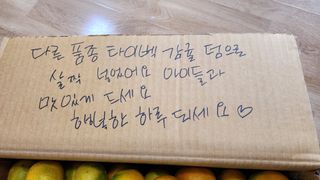 다른 품종 타이벡 감귤 덤으로
살짝 넣었어요 아이들과
맛있게 드세요
행복한 하루 되세요♡